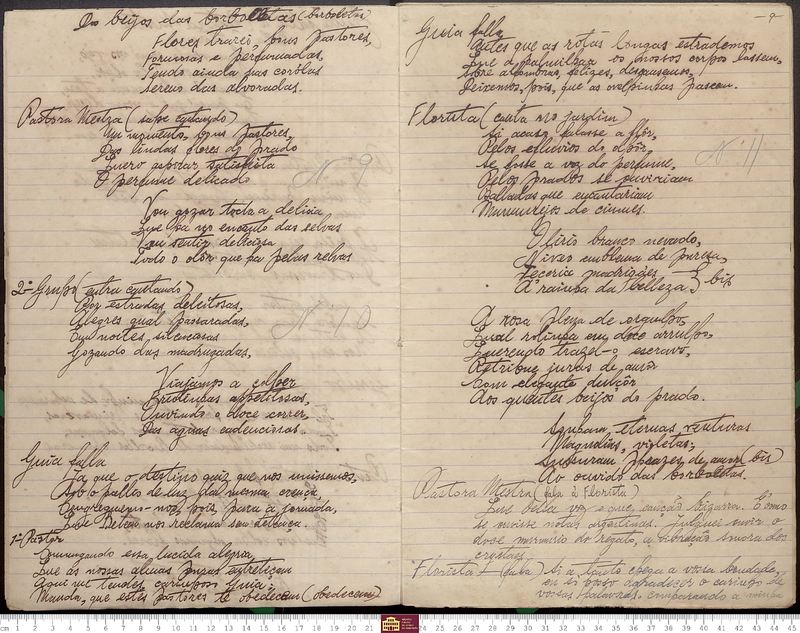 beijos das borboletas (borboletas)
Flores trazei, bons Pastores,
Formosas e perfumadas,
Tendo ainda nas corólas
sereno das alvoradas.
Pastora Mestra (sahe cantando)
Um momento, bons Pastores,
Das lindas flores do prado
Quero aspirar satisfeita
O perfume delicado
Nº 9
Vou gozar toda a delicia
Que ha no encanto das selvas
Vou sentir
todo o olôr que ha pelas relvas
2º Grupo (entra cantando)
Por estradas deleitosas,
Alegres qual passaradas,
Em noites silenciosas
Gozando das madrugadas,
Nº 10
Viajamos a colher
appetitosas,
Ouvindo o doce correr
Das aguas cadenciosas.
Guia falla
Ja que o destino quiz que nos unissemos,
Sob o pallio de luz da mesma crença,
Congreguemo-nos, pois, para a jornada,
Que nos reclama sem detença.
1º Pastor
Commungando essa lucida alegria,
Que as nossas almas
Aqui nos tendes, carinhoso Guia:
Manda, que estes pastores te obedecem (obedecem)
- 9 -
Guia falla
Antes que as rótas longas estrademos
Que de palmilhar os nossos corpos
Sobre alfombras, felizes, descansemos,
Deixemos, pois, que as ovelhinhas pascam.
Florista (canta no jardim)
Si acaso falasse a flôr,
Pelos effluvios do olôr,
Se fosse a voz do perfume,
Pelos prados se ouviriam
Balladas que encantariam
Murmurejos de ciumes.
Nº 11
O lirio branco nevado,
Niveo emblema de pureza,
Teceria madrigaes
A' rainha da belleza } bis
A rosa cheia de orgulho,
Qual rolinha em doce arrulho,
Querendo trazel-o escravo,
Retribue juras de amor
Com elegante dulçôr
Aos quentes beijos do prado.
eternas venturas
Magnolias, violetas,
prazer de amar (bis)
Ao ouvido das borboletas.
Pastora Mestra (fala á Florista)
Que bella voz e que canção bizarra. É como
se ouvisse notas argentinas. Julguei ouvir o
doce murmurio do regato, a vibração sonora dos
crystaes.
Florista (fala) Si a tanto chega a vossa bondade,
eu só posso agradecer o carinho de
vossas palavras, comparando a minha